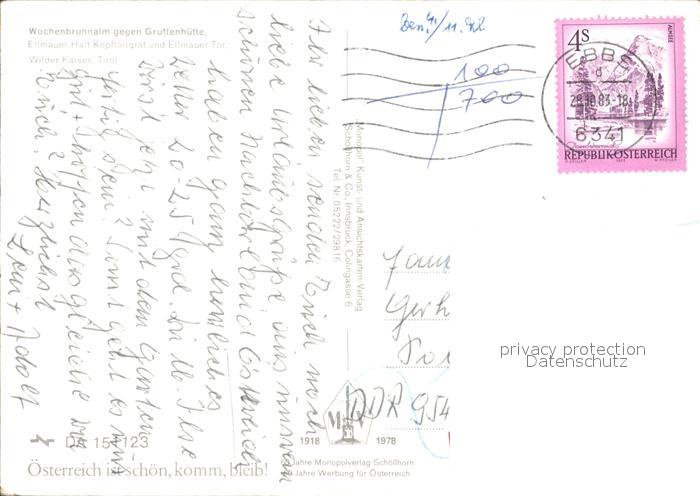 Wochenbrunnalm gegen Gruttenhütte,
Ellmauer Halt Kopftörlgrat und Ellmauer Tor,
Wilder Kaiser, Tirol
Ihr Lieben senden Euch noch
liebe Urlaubsgrüße aus unserem
schönen Nachbarland Österreich
haben ganz herrliches
Wetter 20-25 Grad.
jetzt mit dem Garten
fertig sein? Sonst geht es uns
gut + hoffen das gleiche von
Euch. Herzlichst
+ Adolf
11.82
100
700
Monopol Kunst- und Ansichtskarten-Verlag
Schöllhorn & Co, Innsbruck, Colingasse 6
Tel. Nr. 05222/29816
4S
ALMSEE
REPUBLIK ÖSTERREICH
EBBS
d
28.10.83-18
6341
Fam
Gerh
DDR 954
privacy protection
Datenschutz
DK 15 1123
Österreich ist schön, komm, bleib!
1918 1978
Jahre Monopolverlag Schöllhorn
Jahre Werbung für Österreich